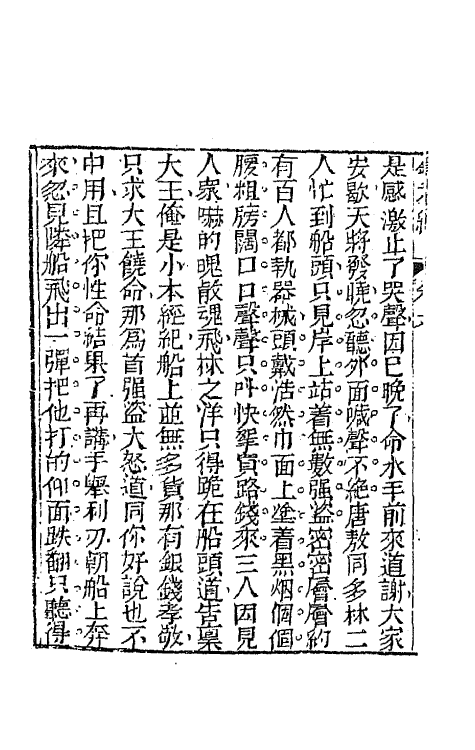 是感激止了哭聲因巳晚了命水手前來道謝大家
安歇天將發曉忽聽外面喊聲不絕唐敖同多林二
人忙到船頭只見岸上站着無數强盜密密層層約
有百人都執器械頭戴浩然巾面上塗着黑烟個個
腰粗膀闊口口聲聲只呌快拏買路錢來三人因見
人衆嚇的魄散魂飛林之洋只得跪在船頭道告禀
大王俺是小本經紀船上並無多貨那有銀錢孝敬
只求大王饒命那爲首强盜大怒道同你好說也不
中用且把你性命結果了再講手舉利刃朝船上奔
來忽見隣船飛出一彈把他打的仰面跌翻只聽得